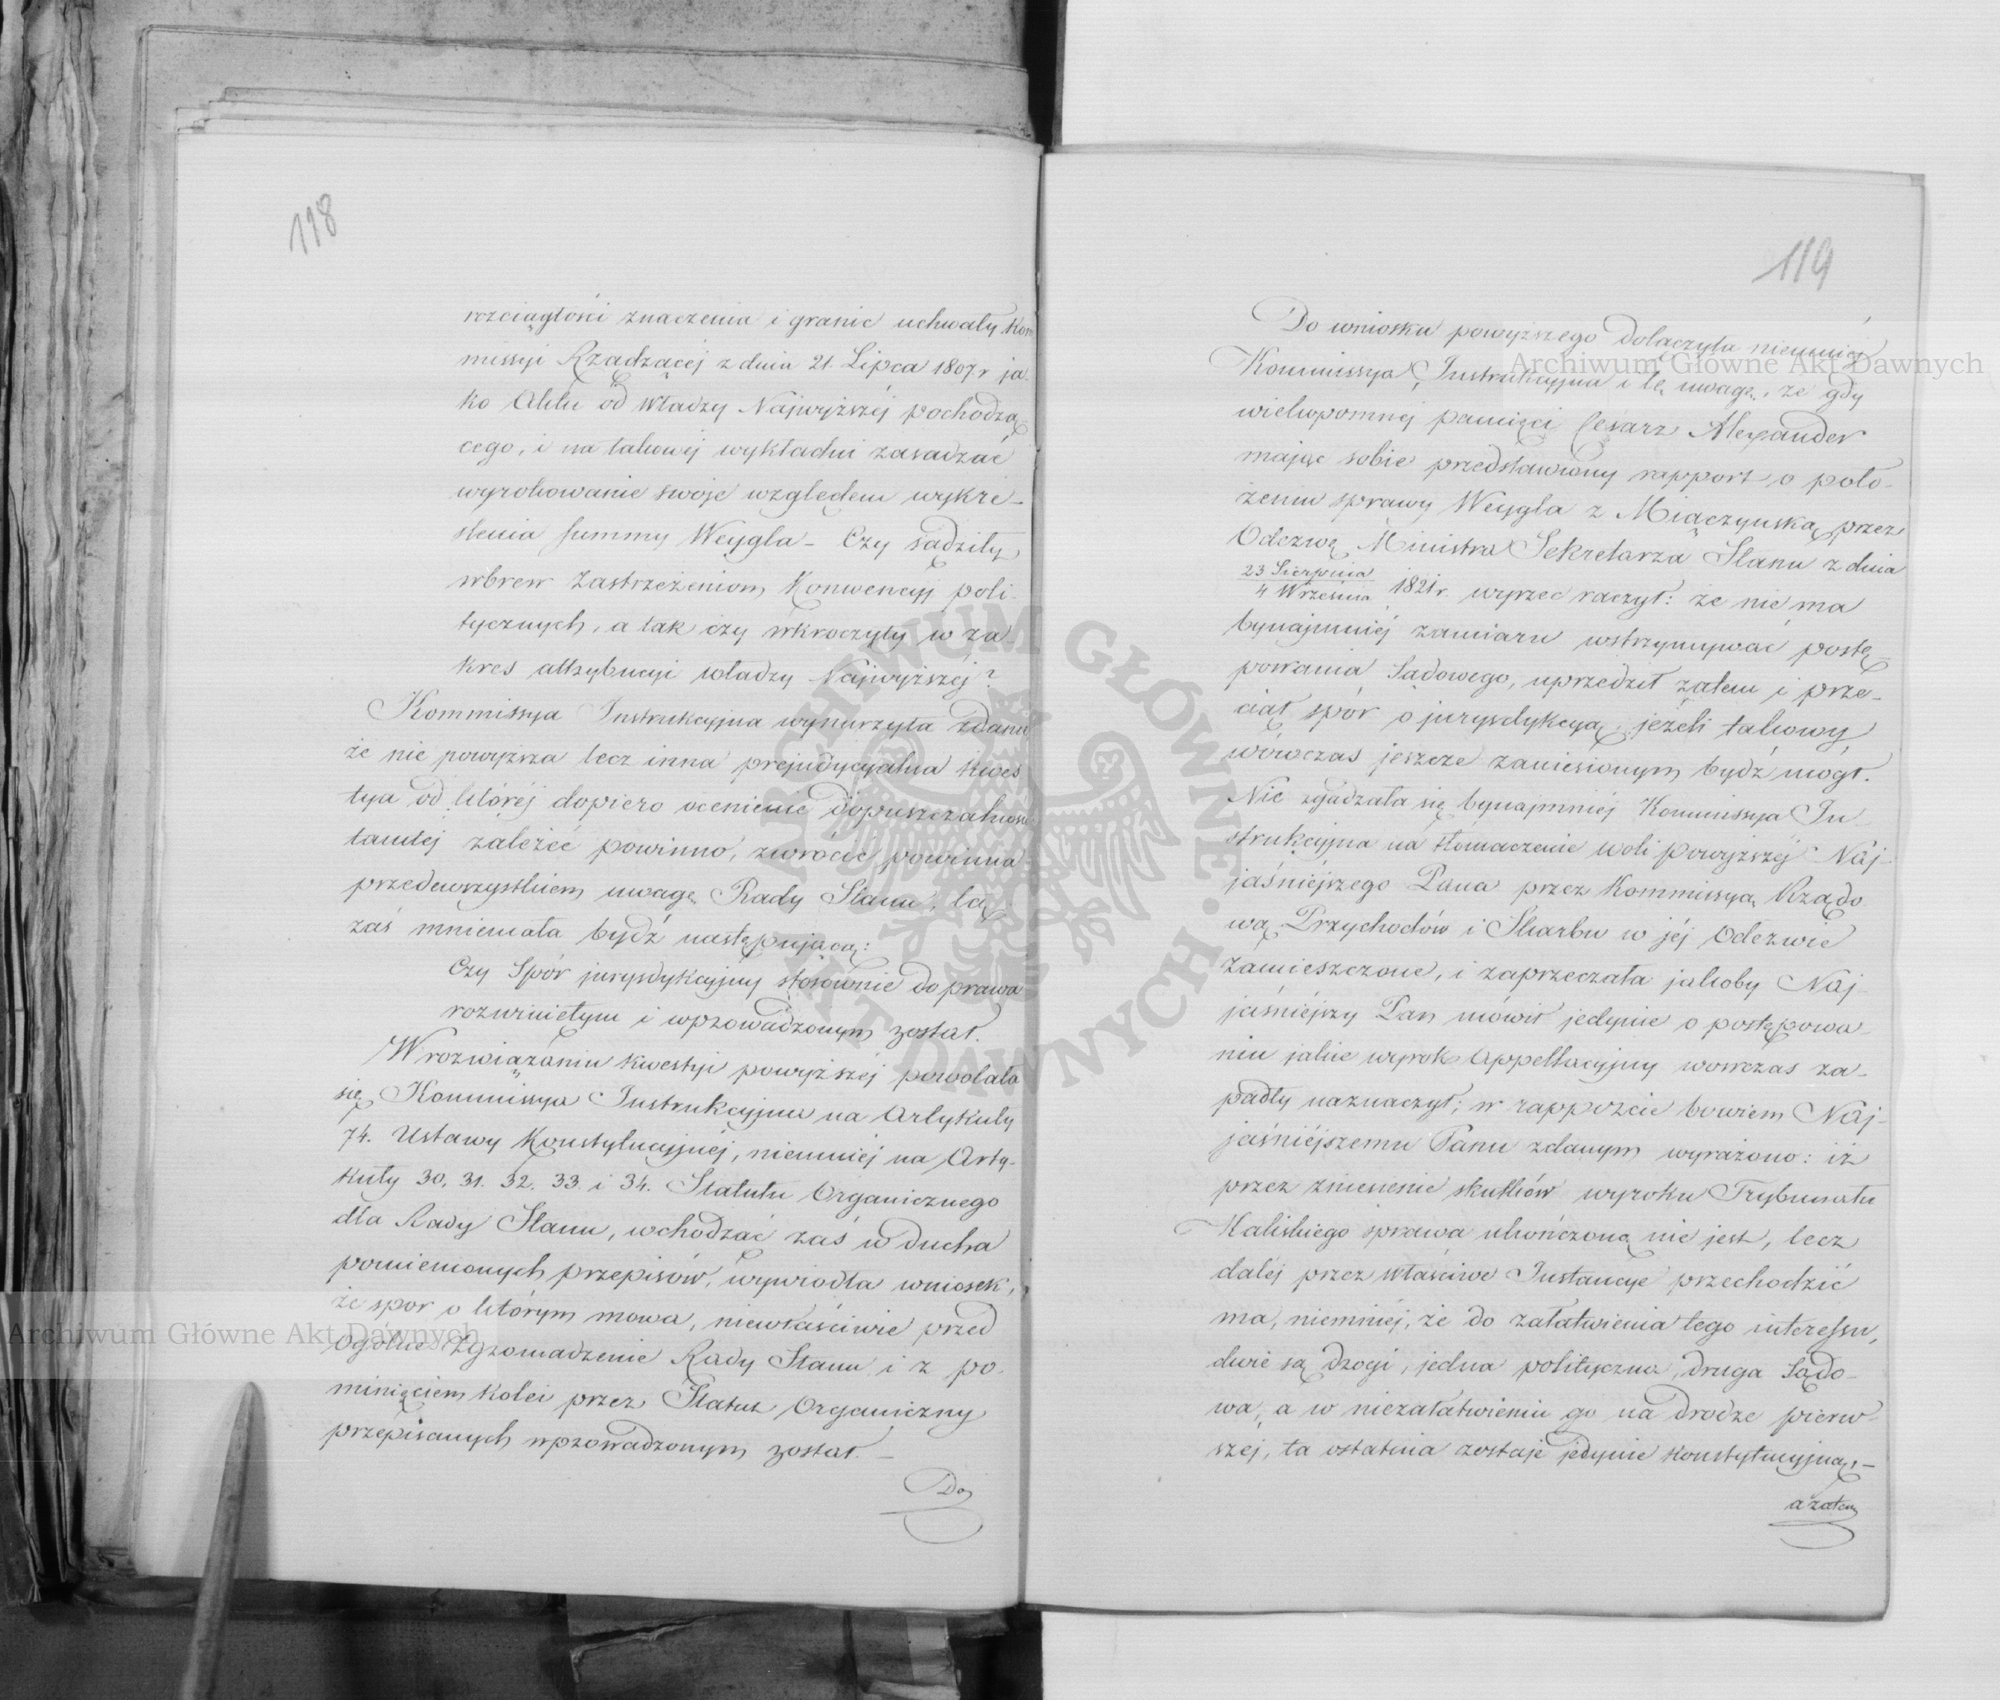 118
rozciągłości znaczenia i granic uchwały Kom
missyi Rządzącéj z dnia 21. Lipca 1807 r ja
ko Aktu od Władzy Najwyższéj pochodzą
cego, i na takowéj wykładni zasadzać
wyrokowanie swoje względem wykre-
ślenia summy Weygla - Czy sądziły
wbrew zastrzeżeniom Konwencyj poli-
tycznych, a tak czy wkroczyły w za-
kres attrybucyi władzy Najwyższéj?
Kommissya Instrukcyjna wynurzyła zdanie
że nie powyższa lecz inna prejudycyalna kwes
tya od któréj dopiero ocenienie dopuszczalności
tamtéj zależéć powinno, zwrócić powinna
przedewszystkiem uwagę Rady Stanu, tą
zaś mniemała bydź następującą:
Czy Spór jurysdykcyjny stosownie do prawa
rozwiniętym i wprowadzonym został.
W rozwiązaniu kwestyi powyższéj powołała
się Kommissya Instrukcyjna na Artykuły
74. Ustawy Konstytucyjnéj, niemniéj na Arty-
kuły 30. 31. 32. 33 i 34. Statutu Organicznego
dla Rady Stanu, wchodząc zaś w ducha
pomienionych przepisów, wywiodła wniosek,
że spor o którym mowa, niewłaściwie przed
Ogólne Zgromadzenie Rady Stanu i z po-
minięciem kolei przez Statut Organiczny
przepisanych wprowadzonym został. -
Do
119
Do wniosku powyższego dołączyła niemniéj
Kommissya Instrukcyjna i tę uwagę, że gdy
wiekopomnéj pamięci Cesarz Alexander
mając sobie przedstawiony rapport o poło-
żeniu sprawy Weygla z Miączyńską przez
Odezwę Ministra Sekretarza Stanu z dnia
23 Sierpnia
4 Września 1821 r. wyrzec raczył: że nie ma
bynajmniéj zamiaru wstrzymywać postę
powania Sądowego, uprzedził zatem i prze-
ciął spór o jurysdykcyą, jeżeli takowy
wówczas jeszcze zaniesionym bydź mógł.
Nie zgadzała się bynajmniéj Kommissya In-
strukcyjna na tłomaczenie woli powyższéj Naj-
jaśniejszego Pana przez Kommissyą Rządo
wą Przychodów i Skarbu w jéj Odezwie
zamieszczone, i zaprzeczała jakoby Naj-
jaśniejszy Pan mówił jedynie o postępowa-
niu jakie wyrok Appellacyjny wówczas za-
padły naznaczył; w rapporcie bowiem Naj-
jaśniejszemu Panu zdanym wyrażono: iż
przez zniesienie skutków wyroku Trybunału
Kaliskiego sprawa ukończoną nie jest, lecz
daléj przez właściwe Instancye przechodzić
ma, niemniéj, że do załatwienia tego interessu,
dwie są drogi, jedna polityczna, druga Sądo-
wa, a w niezałatwieniu go na drodze pierw-
széj, ta ostatnia zostaje jedynie konstytucyjną, -
a zatem
Archiwum Główne Akt Dawnych
Archiwum Główne Akt Dawnych
ARCHIWUM GŁÓWNE AKT DAWNYCH